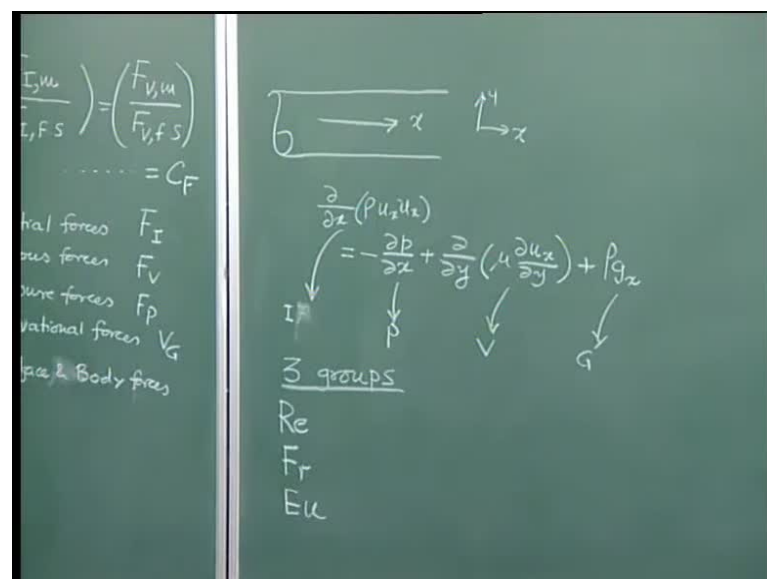 I,m / I,FS ) = ( F_V,m / F_V,fS )
...... = C_F
tial forces F_I
ous forces F_V
sure forces F_P
vational forces V_G
face & Body forces
x y x
∂/∂x (ρ u_x u_x)
= - ∂p/∂x + ∂/∂y (μ ∂u_x/∂y) + ρg_x
I P V G
3 groups
Re
Fr
Eu